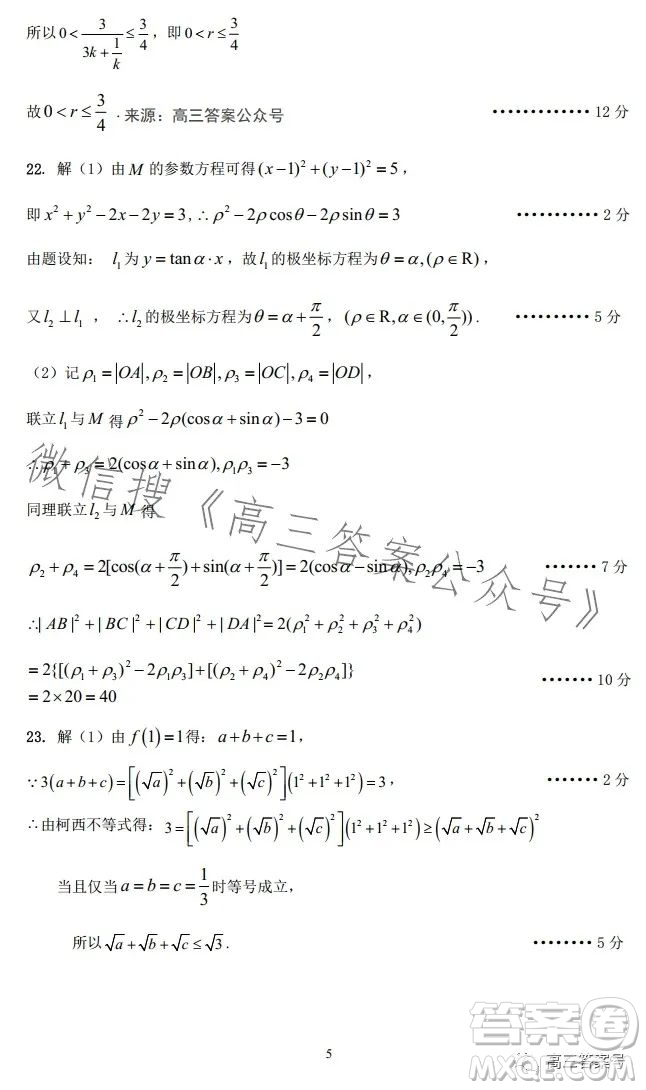 所以 0 < 3/(3k+1/k) ≤ 3/4，即 0 < r ≤ 3/4
故 0 < r ≤ 3/4 . 来源：高三答案公众号 ············· 12 分
22. 解（1）由 M 的参数方程可得 (x−1)²+(y−1)²=5，
即 x²+y²−2x−2y=3, ∴ρ²−2ρcosθ−2ρsinθ=3 ··········· 2 分
由题设知： l₁ 为 y=tanα·x，故 l₁ 的极坐标方程为 θ=α,(ρ∈R)，
又 l₂⊥l₁ ， ∴l₂ 的极坐标方程为 θ=α+π/2，(ρ∈R,α∈(0,π/2)) . ·········· 5 分
（2）记 ρ₁=|OA|,ρ₂=|OB|,ρ₃=|OC|,ρ₄=|OD|，
联立 l₁ 与 M 得 ρ²−2ρ(cosα+sinα)−3=0
∴ρ₁+ρ₃=2(cosα+sinα),ρ₁ρ₃=−3
同理联立 l₂ 与 M 得
ρ₂+ρ₄=2[cos(α+π/2)+sin(α+π/2)]=2(cosα−sinα),ρ₂ρ₄=−3 ······· 7 分
∴|AB|²+|BC|²+|CD|²+|DA|²=2(ρ₁²+ρ₂²+ρ₃²+ρ₄²)
=2{[(ρ₁+ρ₃)²−2ρ₁ρ₃]+[(ρ₂+ρ₄)²−2ρ₂ρ₄]}
=2×20=40 ········ 10 分
23. 解（1）由 f(1)=1 得：a+b+c=1，
∵3(a+b+c)=[(√a)²+(√b)²+(√c)²](1²+1²+1²)=3， ······· 2 分
∴由柯西不等式得：3=[(√a)²+(√b)²+(√c)²](1²+1²+1²)≥(√a+√b+√c)²
当且仅当 a=b=c=1/3 时等号成立，
所以 √a+√b+√c≤√3 . ········· 5 分
微信搜《高三答案公众号》
5
高三答案号
答案圈
MXQE.COM